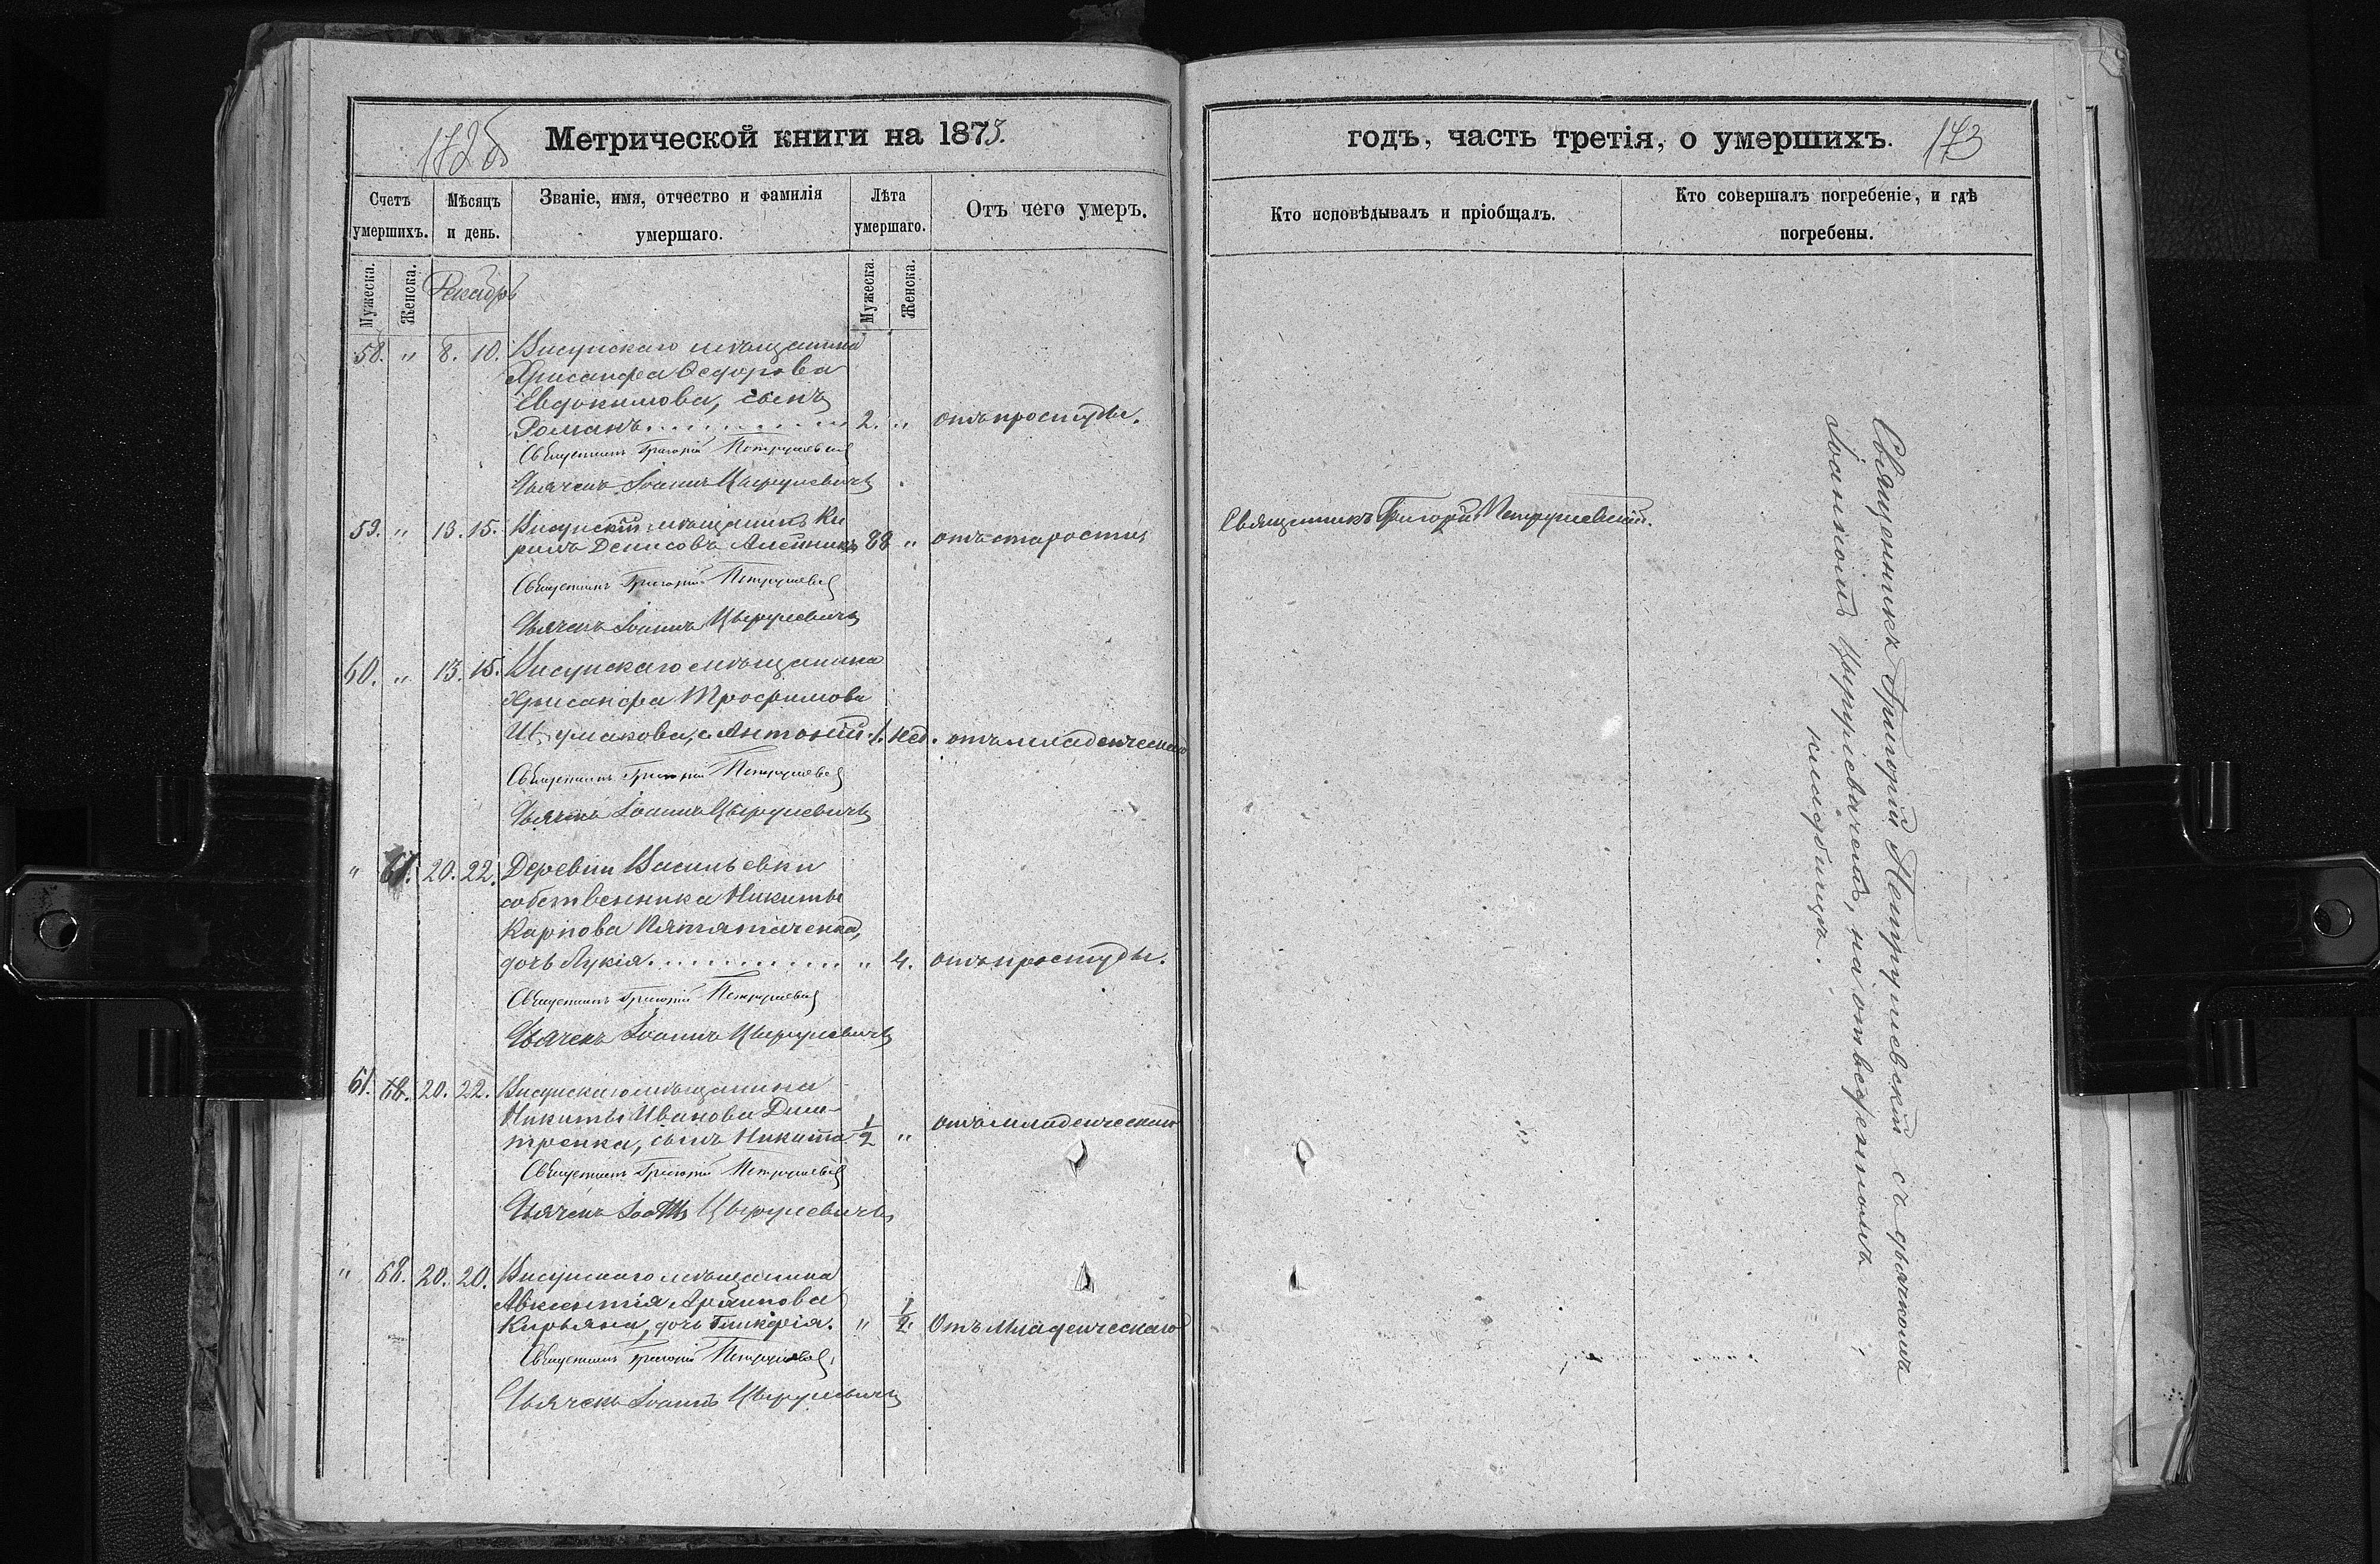 172б
Метрической книги на 1875.
Счетъ умершихъ.
Мѣсяцъ и день.
Званіе, имя, отчество и фамилія умершаго.
Лѣта умершаго.
Отъ чего умеръ.
Мужеска.
Женска.
Декабрь
Мужеска.
Женска.
58. " 8. 10. Висунскаго мѣщанина
Хрисанфа Ѳедорова
Евдокимова, сынъ
Романъ. . . . . . . . . . 2. " отъ простуды.
Священникъ Григорій Петрушевскій
Дьячекъ Іоаннъ Цырулевичъ
59. " 13. 15. Висунскій мѣщанинъ Ки
рилъ Денисовъ Алейникъ 88 " отъ старости
Священникъ Григорій Петрушевскій
Дьячекъ Іоаннъ Цырулевичъ
60. " 13. 15. Висунскаго мѣщанина
Хрисанфа Трофимова
Шумакова, с. Антоній. 1. нед. отъ младенческаго
Священникъ Григорій Петрушевскій
Дьячекъ Іоаннъ Цырулевичъ
" 67. 20. 22. Деревни Васильевки
собственника Никиты
Карпова
дочь Лукія. . . . . . . . . . . . " 4. отъ простуды.
Священникъ Григорій Петрушевскій
Дьячекъ Іоаннъ Цырулевичъ
61. 68. 20. 22. Висунскаго мѣщанина
Никиты Иванова Дми-
тренка, сынъ Никита. 1/2 " отъ младенческаго
Священникъ Григорій Петрушевскій
Дьячекъ Іоаннъ Цырулевичъ
" 68. 20. 20. Висунскаго мѣщанина
Авксентія Архипова
Кирьяна, дочь Гликерія. " 1/2. Отъ младенческаго
Священникъ Григорій Петрушевскій
Дьячекъ Іоаннъ Цырулевичъ
годъ, часть третія, о умершихъ. 173
Кто исповѣдывалъ и пріобщалъ.
Кто совершалъ погребеніе, и гдѣ погребены.
Священникъ Григорій Петрушевскій.
Священникъ Григорій Петрушевскій съ дьячкомъ
Іоанномъ Цырулевичемъ, на отведенномъ
кладбищѣ.